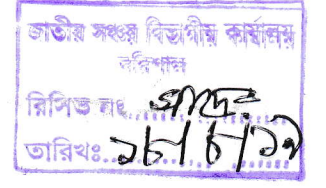 জাতীয় সঞ্চয় বিভাগীয় কার্যালয়
বরিশাল
রিসিভ নং
তারিখঃ ১৮/৮/১৯